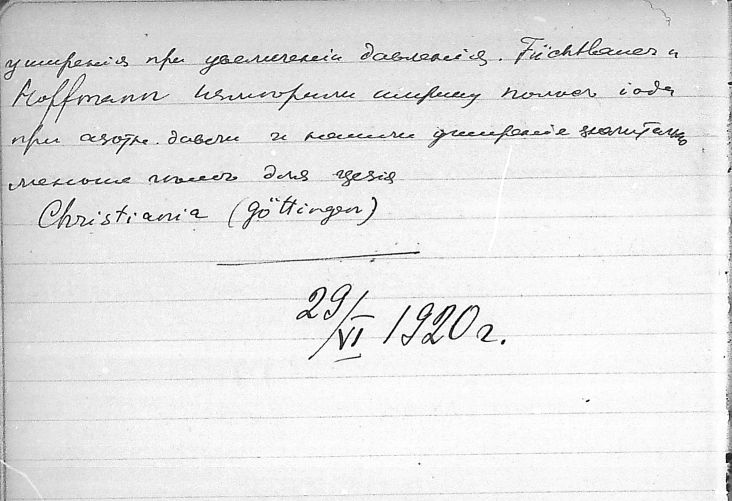 уширенія при увеличеніи давленія. Füchtbauer и
Hoffmann измѣрили ширину полосъ іода
при азотн. давл. и нашли уширеніе значительно
меньше чѣмъ для цезія
Christiania (Göttingen)
29/VI 1920 г.